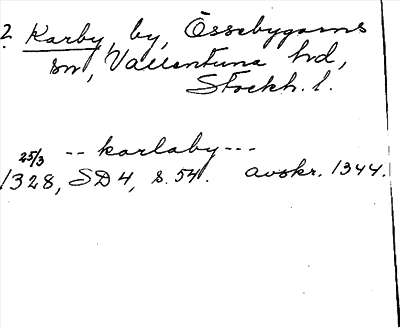 2 Karby, by, Össebygarns
sn, Vallentuna hd,
Stockh. l.
25/3 -- karlaby ---
1328, SD 4, s. 54. avskr. 1344.